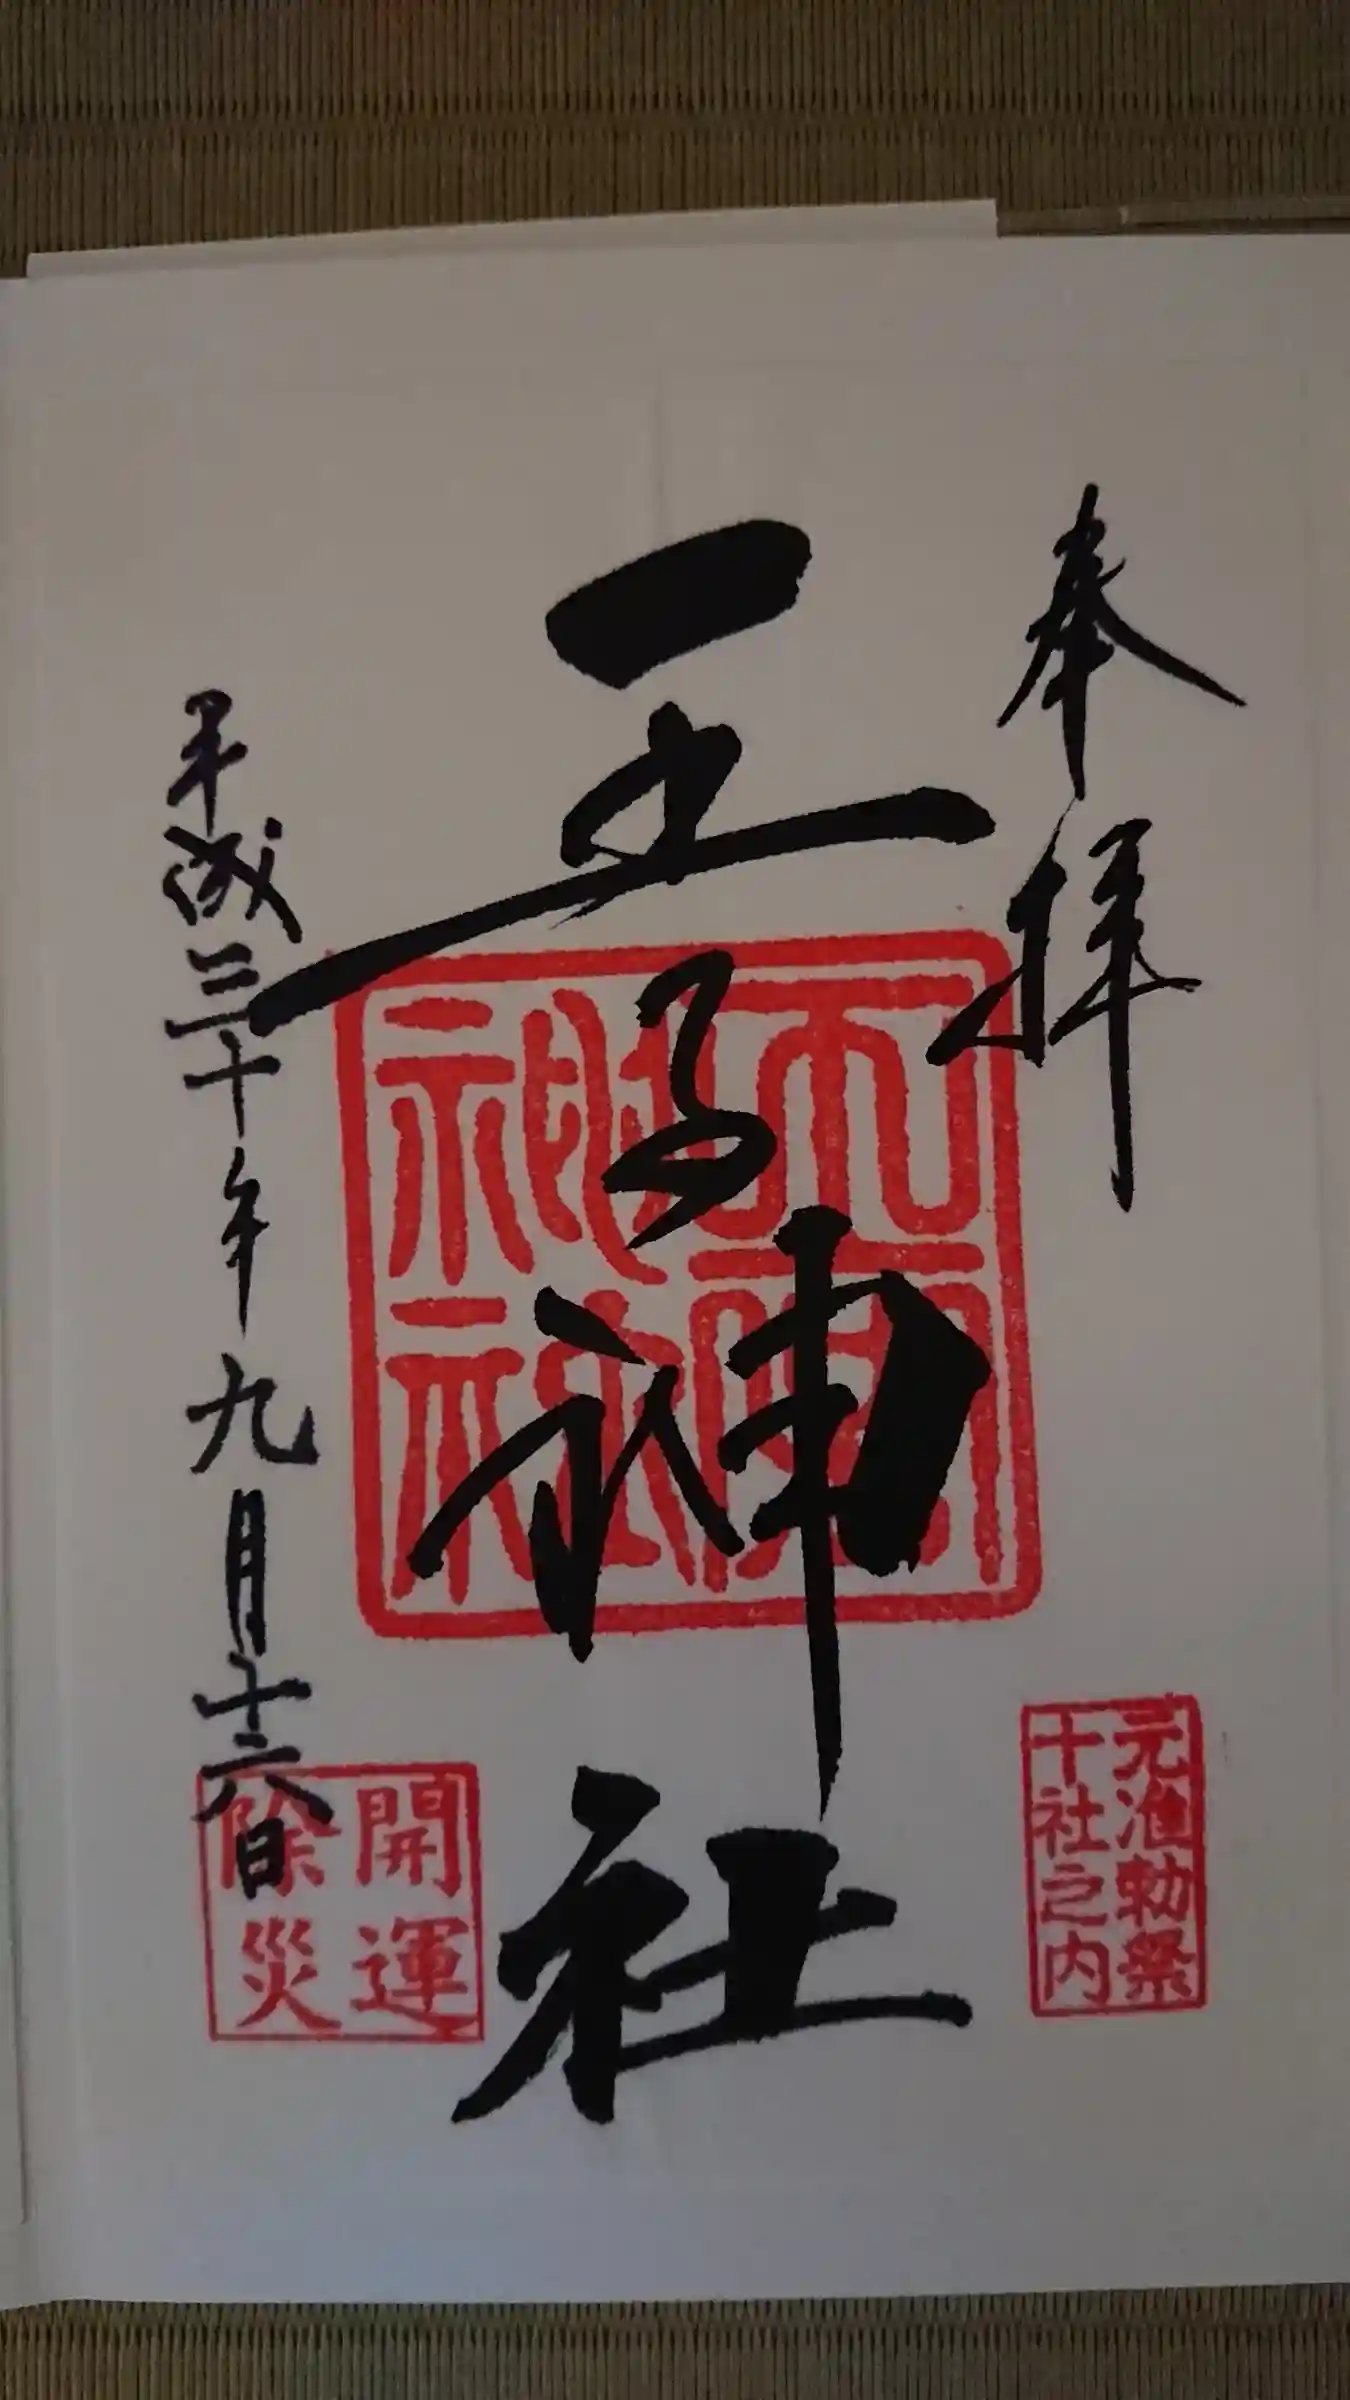 奉拝
元准勅祭
十社之内
王子神社
王子神社
開運
除災
平成三十年九月十六日